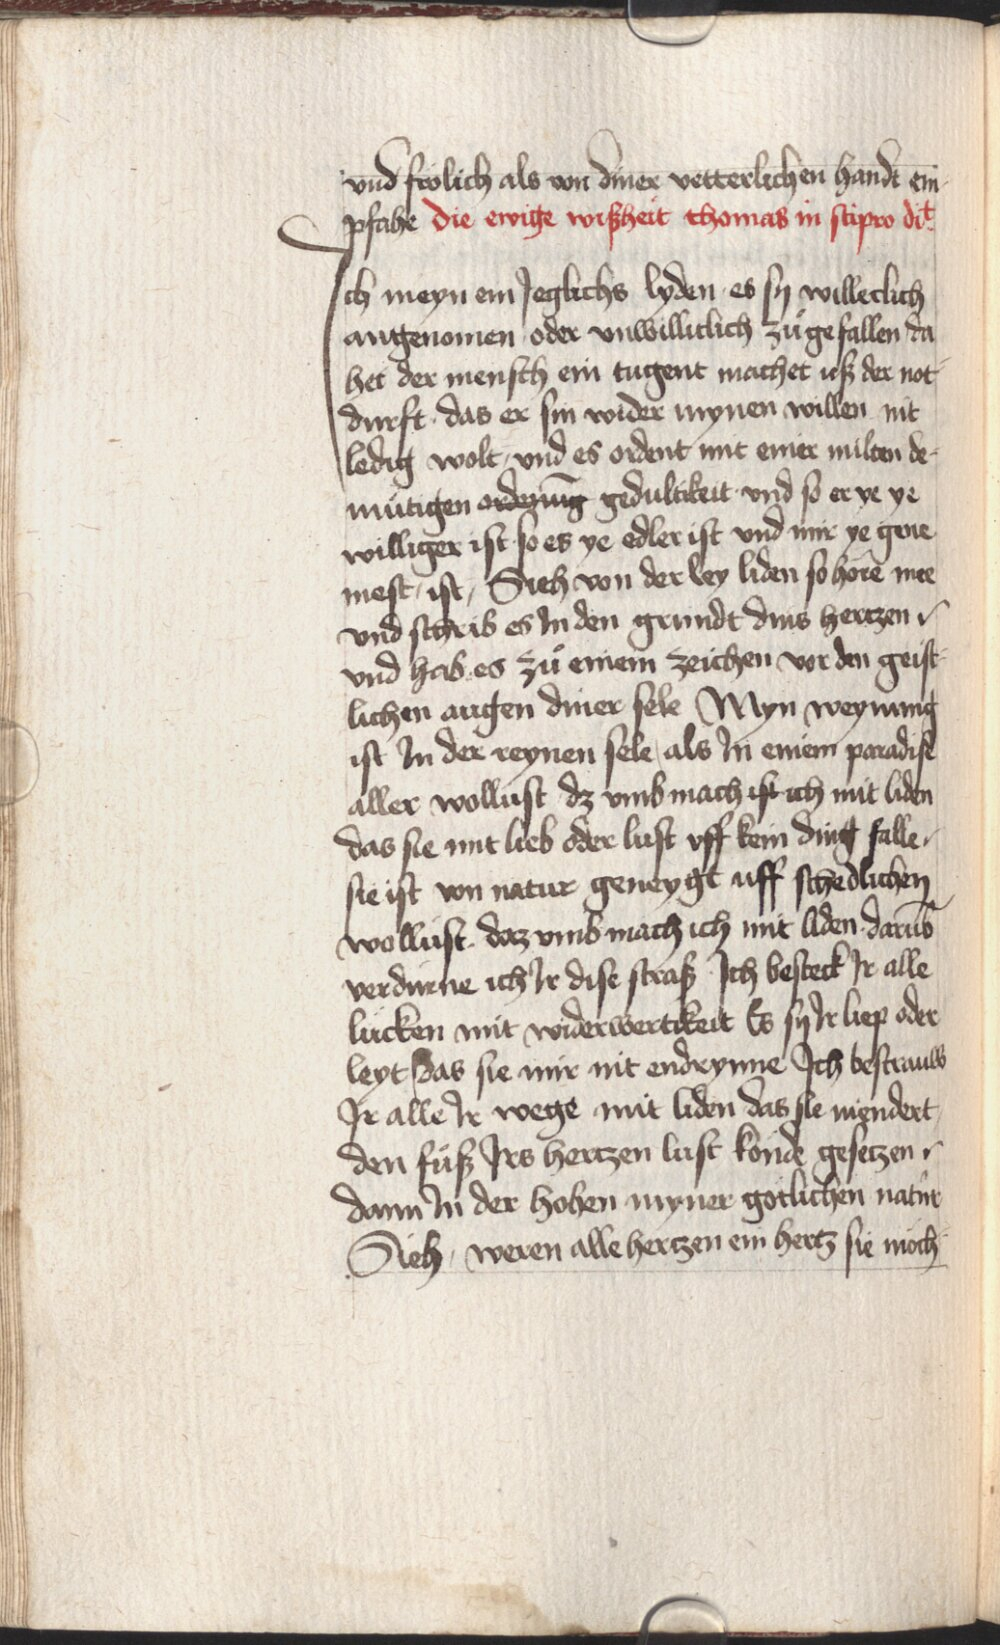 vnd frölich als von diner vetterlichen handt em-
pfahe Die ewige wißheit thomas in scipto dit
Ich meyn ein Jeglichs lyden es sy willeclich
angenomen oder vnwilliclich zů gefallen da
het der mensch ein tugent machet uß der not
durfft das er sin wider mynen willen nit
ledig wolt vnd es ordent mit einer milten de-
mütigen ordenung gedultikeit vnd so er ye ye
williger ist so es ye edler ist vnd mir ye gene
mest ist, Sieh von der ley liden so höre mee
vnd schrib es In den grundt dins hertzen
vnd hab es zů einem zeichen vor den geist-
lichen augen diner sele Myn weynung
ist In der reynen sele als In einem paradise
aller wollust dz vmb mach ist ich mit liden
das sie mit lieb oder lust vff kein ding falle
sie ist von natur geneygt uff schedlichen
wollust daz vmb mach ich mit liden darumb
verdürne ich Ir dise straß Ich besteck Ir alle
lucken mit widerwertikeit Es sy Ir liep oder
leyt Das sie mir nit endrynne Ich bestrauw
Ir alle Ir wege mit liden das sie niendert
den fůß Irs hertzen lust konde gesetzen
dann In der hohen myner gotlichen natur
Sieh weren alle hertzen ein hertz sie möch-